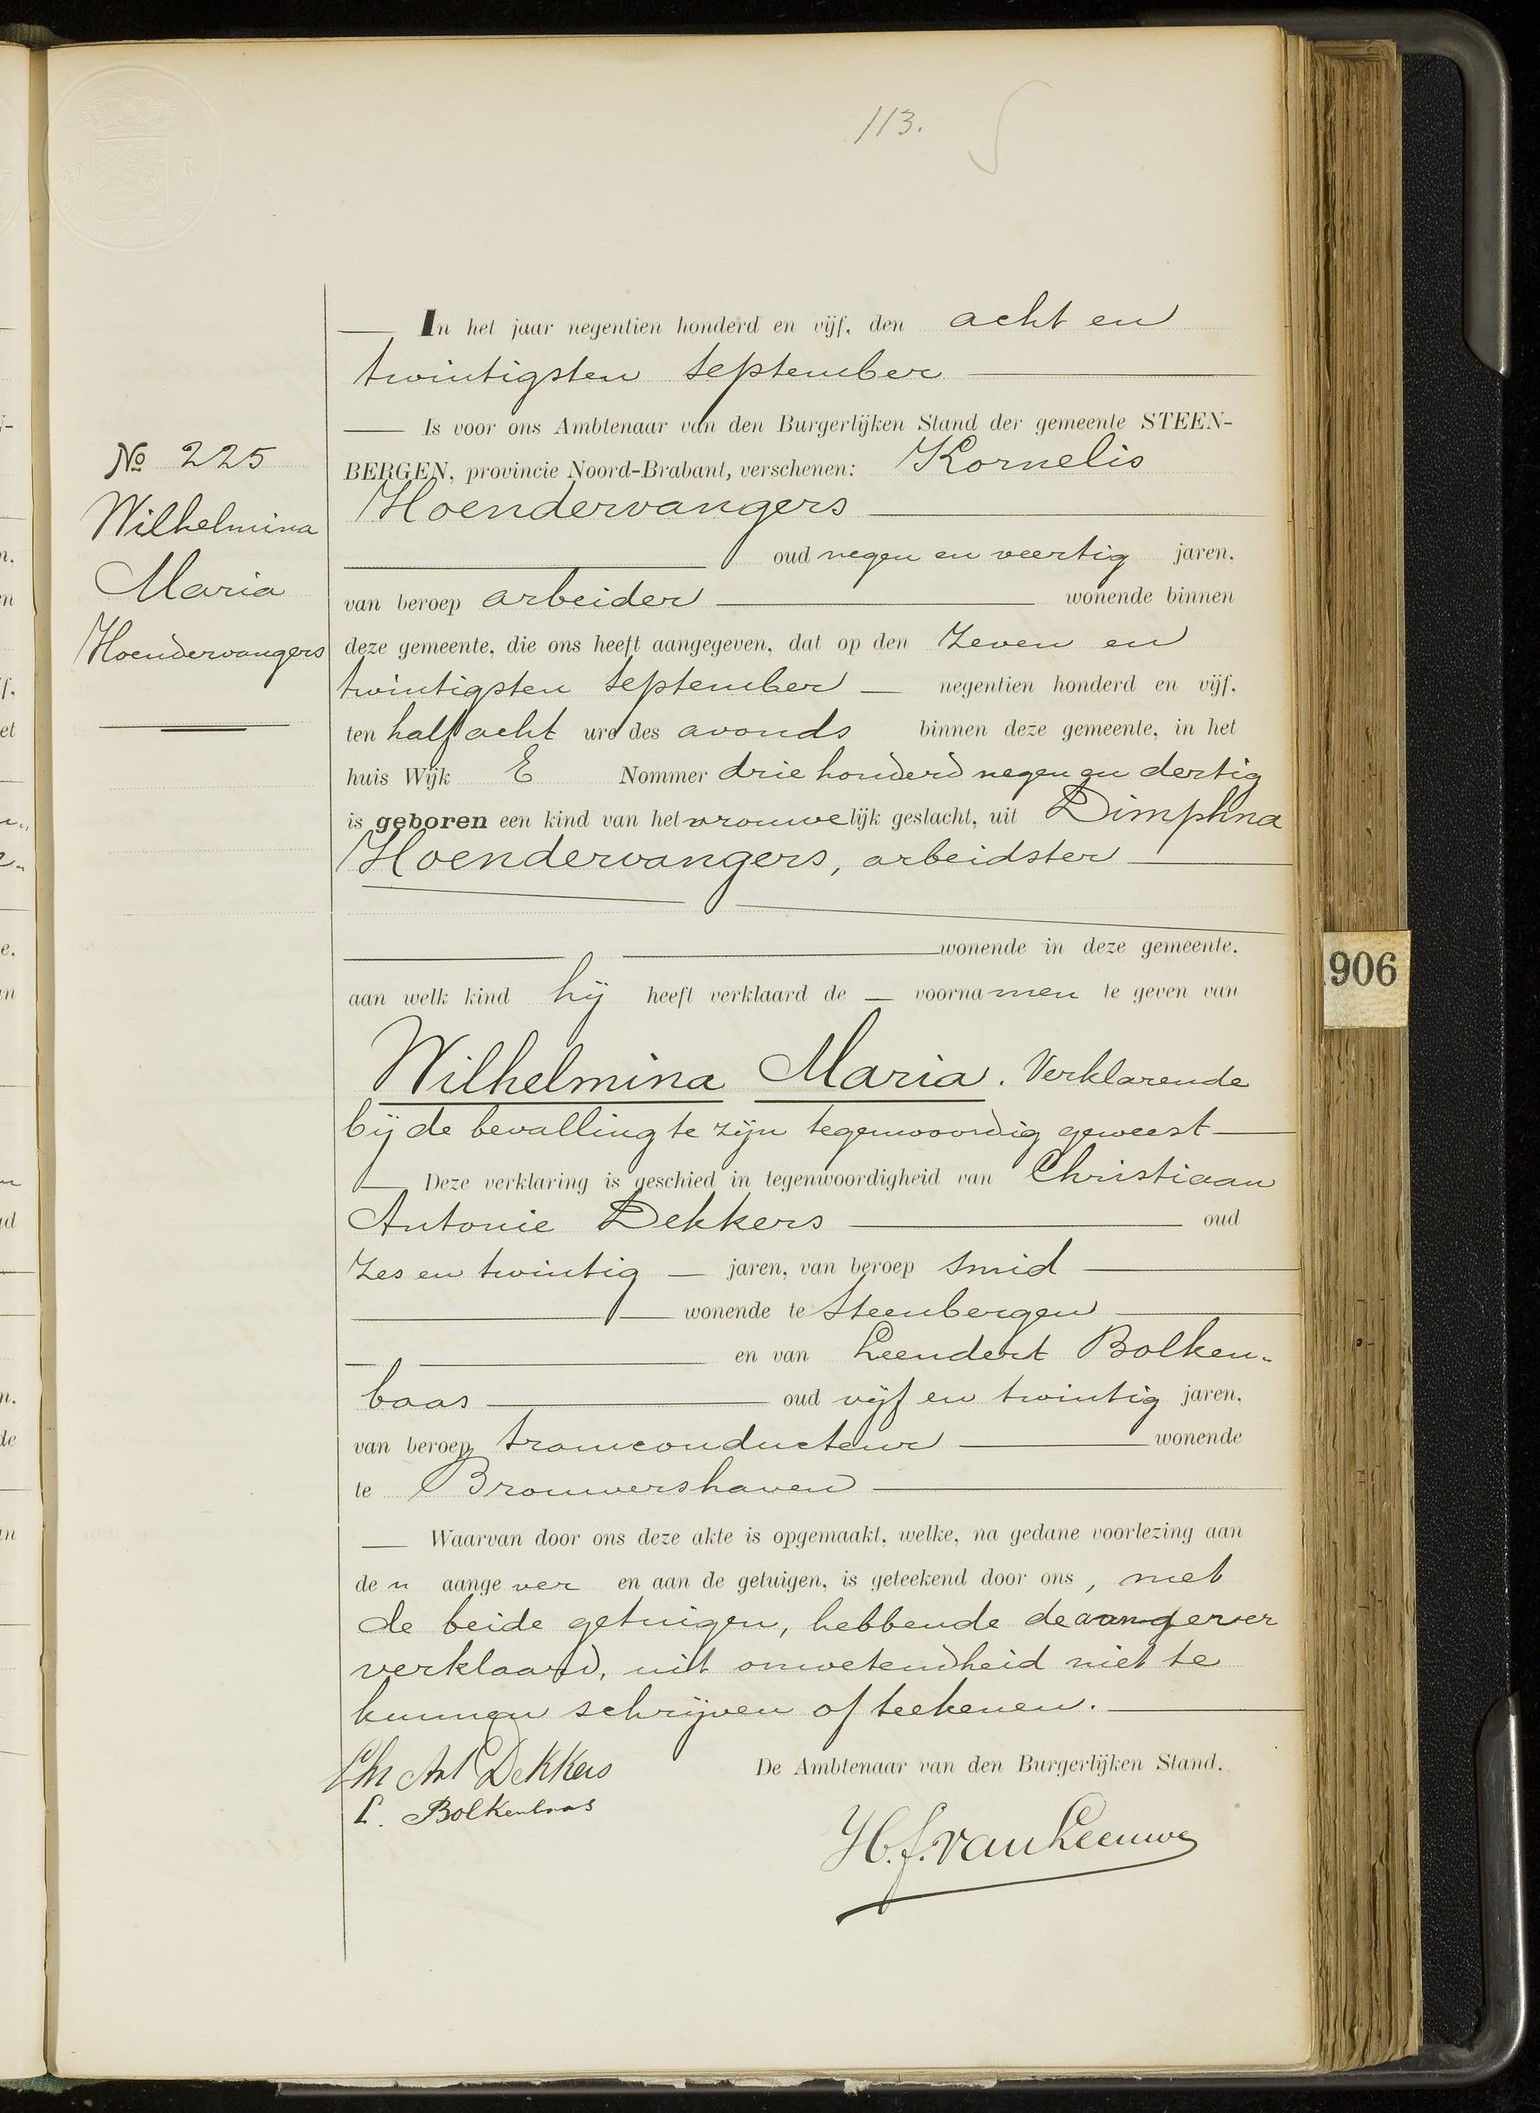 113.
In het jaar negentien honderd en vijf, den acht en
twintigsten September
Is voor ons Ambtenaar van den Burgerlijken Stand der gemeente STEEN-
BERGEN, provincie Noord-Brabant, verschenen: Kornelis
Hoendervangers
oud negen en veertig jaren,
van beroep arbeider wonende binnen
deze gemeente, die ons heeft aangegeven, dat op den zeven en
twintigsten September negentien honderd en vijf,
ten half acht ure des avonds binnen deze gemeente, in het
huis Wijk E Nommer drie honderd negen en dertig
is geboren een kind van het vrouwelijk geslacht, uit Dimphna
Hoendervangers, arbeidster
wonende in deze gemeente.
aan welk kind hij heeft verklaard de voornamen te geven van
Wilhelmina Maria. Verklarende
bij de bevalling te zijn tegenwoordig geweest
Deze verklaring is geschied in tegenwoordigheid van Christiaan
Antonie Dekkers oud
zes en twintig jaren, van beroep smid
wonende te Steenbergen
en van Leendert Bolken-
baas oud vijf en twintig jaren,
van beroep tramconducteur wonende
te Brouwershaven
Waarvan door ons deze akte is opgemaakt, welke, na gedane voorlezing aan
den aangever en aan de getuigen, is geteekend door ons, met
de beide getuigen, hebbende de aangever
verklaard, uit onwetendheid niet te
kunnen schrijven of teekenen.
De Ambtenaar van den Burgerlijken Stand.
Chr Ant Dekkers
L. Bolkenbaas
H.J. van Leeuwe
No 225
Wilhelmina
Maria
Hoendervangers
906